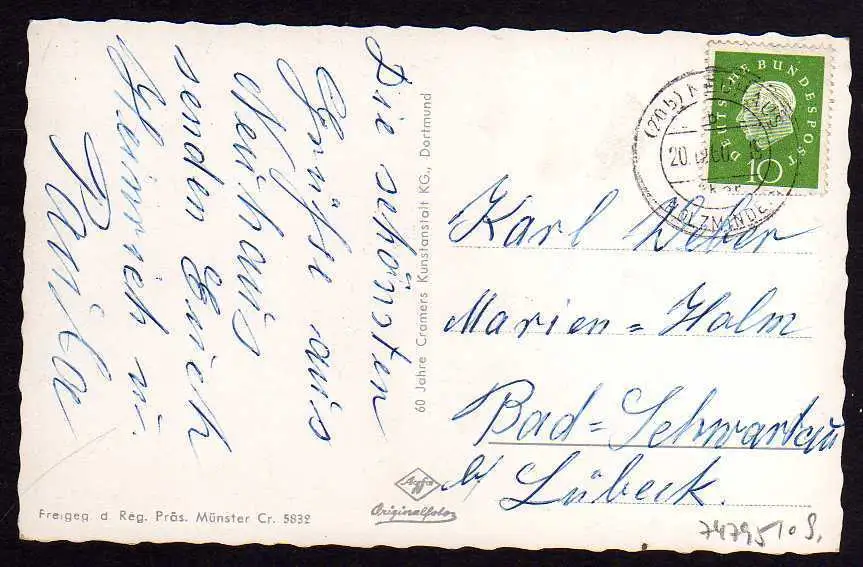 Die schönsten
Grüße aus
Neuhaus
senden Euch
Heinrich u.
60 Jahre Cramers Kunstanstalt KG., Dortmund
DEUTSCHE BUNDESPOST
10
(20b) NEUHAUS
20.
HOLZMINDEN
Karl Weber
Marien=Holm
Bad=Schwartau
b/ Lübeck.
Agfa
Originalfoto
Freigeg. d. Reg. Präs. Münster Cr. 5832